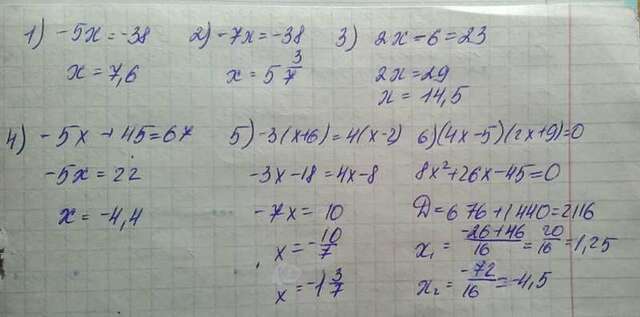 1) -5x = -38
x = 7,6
2) -7x = -38
x = 5 3/7
3) 2x - 6 = 23
2x = 29
x = 14,5
4) -5x + 45 = 67
-5x = 22
x = -4,4
5) -3(x+6) = 4(x-2)
-3x - 18 = 4x - 8
-7x = 10
x = -10/7
x = -1 3/7
6) (4x-5)(2x+9) = 0
8x² + 26x - 45 = 0
D = 676 + 1440 = 2116
x₁ = (-26+46)/16 = 20/16 = 1,25
x₂ = -72/16 = -4,5